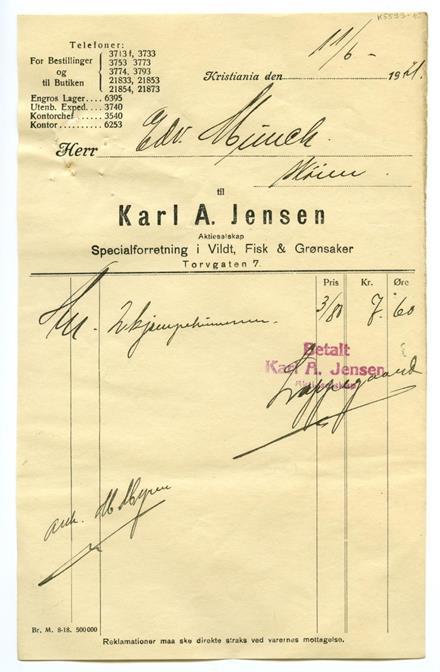 K5593-
Telefoner:
For Bestillinger og til Butiken
3713 f, 3733
3753 3773
3774, 3793
21833, 21853
21854, 21873
Engros Lager.... 6395
Utenb. Exped. ... 3740
Kontorchef ...... 3540
Kontor .......... 6253
Kristiania den 11/6 - 1921.
Herr Edv. Munch.
Skøien.
til
Karl A. Jensen
Aktieselskap
Specialforretning i Vildt, Fisk & Grønsaker
Torvgaten 7.
Pris Kr. Øre
2 kjæmpehummer. 3/80 7.60
Betalt
Karl A. Jensen
Aktieselskap
Br. M. 8-18. 500 000
Reklamationer maa ske direkte straks ved varernes mottagelse.